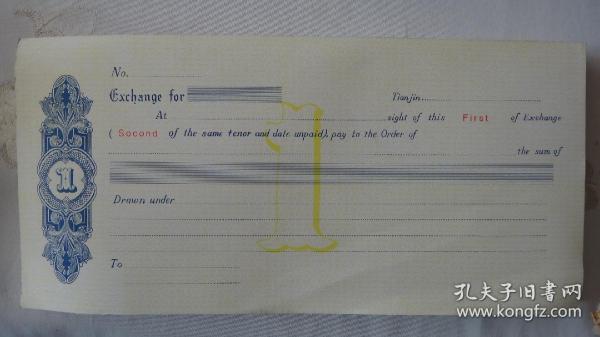 No.
Exchange for
Tianjin
At sight of this First of Exchange
( Socond of the same tenor and date unpaid), pay to the Order of
the sum of
1
Drawn under
To
孔夫子旧书网
www.kongfz.com